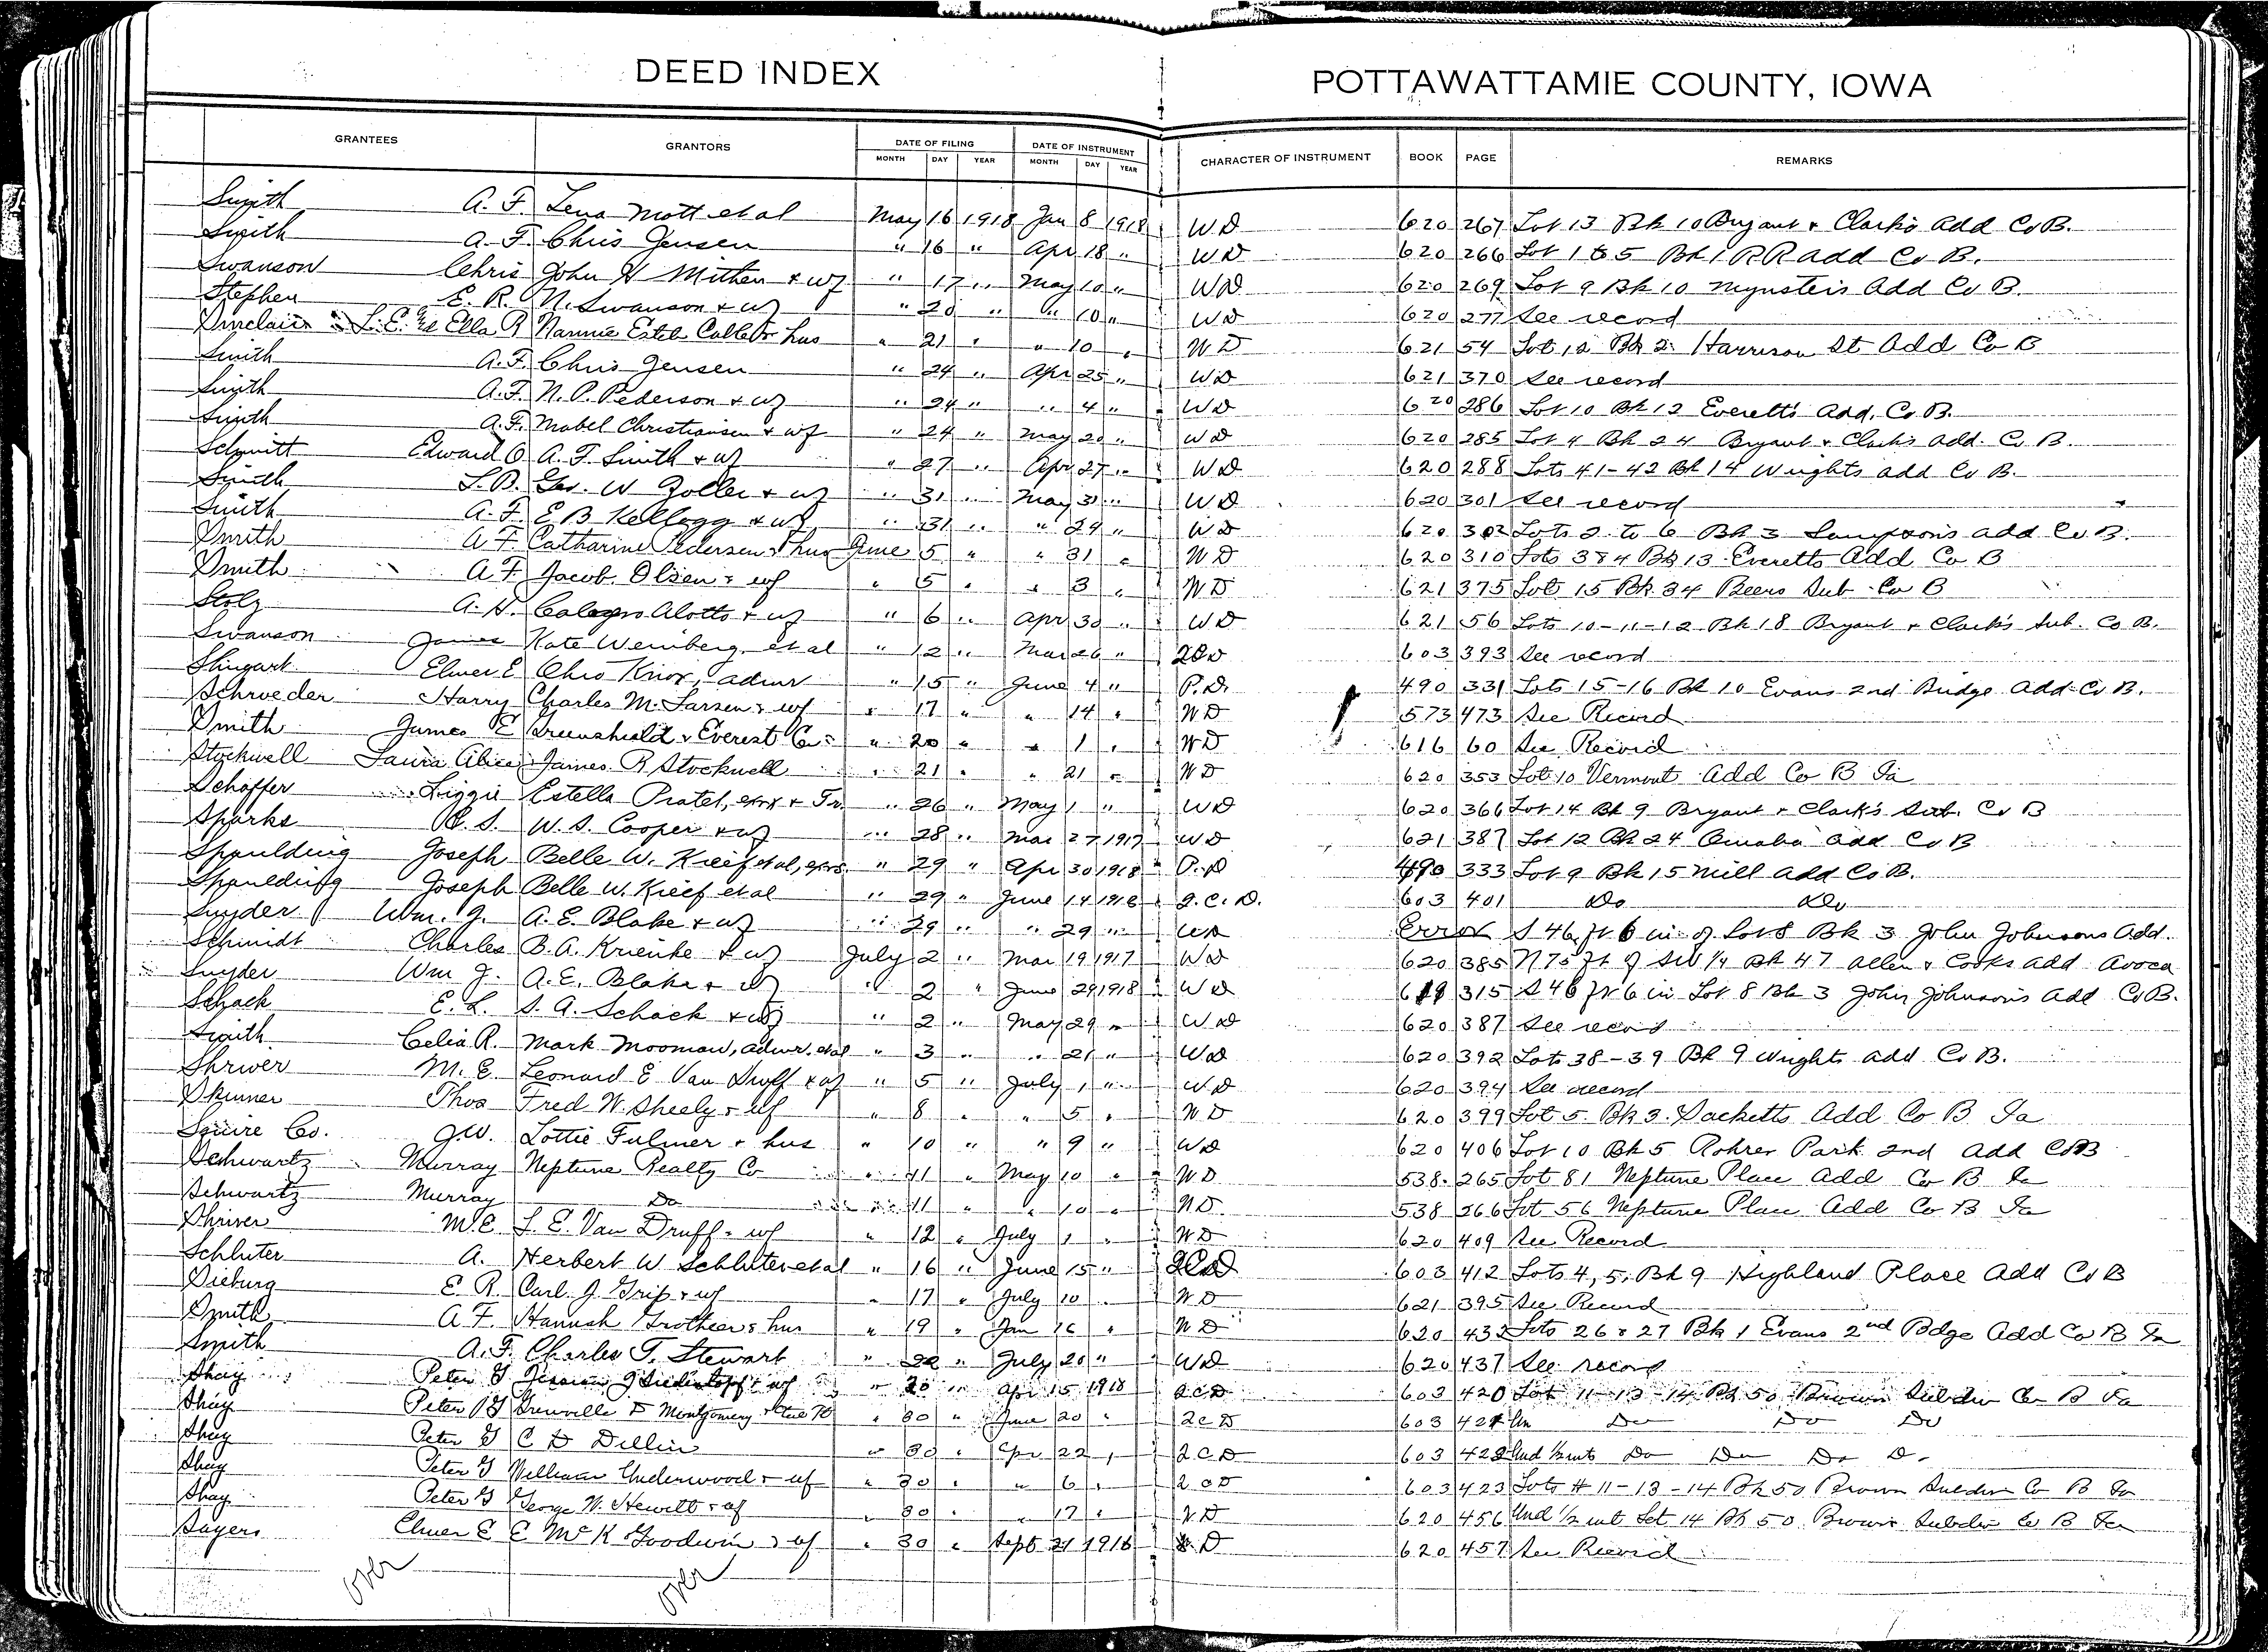 DEED INDEX
POTTAWATTAMIE COUNTY, IOWA
GRANTEES GRANTORS DATE OF FILING DATE OF INSTRUMENT CHARACTER OF INSTRUMENT BOOK PAGE REMARKS
MONTH DAY YEAR MONTH DAY YEAR
Smith A. F. Lena Mott et al May 16 1918 Jan 8 1918 WD 620 267 Lot 13 Bk 10 Bryant & Clark's Add Co B.
Smith A. F. Chris Jensen " 16 " Apr 18 " WD 620 266 Lot 1 to 5 Bk 1 RR add Co B.
Swanson Chris John H Mithen & wf " 17 " May 10 " WD 620 269 Lot 9 Bk 10 Mynsters Add Co B.
Stephen E. R. N. Swanson & wf " 20 " " 10 " WD 620 277 See record
Sinclair L. E. Ella R Nannie Estel & hus " 21 " " 10 " WD 621 54 Lot 12 Bk 2 Harrison St Add Co B
Smith A. F. Chris Jensen " 24 " Apr 25 " WD 621 370 See record
Smith A. F. N. P. Pederson & wf " 24 " " 4 " WD 620 286 Lot 10 Bk 12 Everett's Add. Co. B.
Smith A. F. Mabel Christiansen & wf " 24 " May 20 " WD 620 285 Lot 4 Bk 24 Bryant & Clark's Add. Co B.
Schmitt Edward O A. F. Smith & wf " 27 " Apr 27 " WD 620 288 Lots 41-42 Bk 14 Wrights add Co B.
Smith L. B. Geo. W Zoller & wf " 31 " May 31 " WD 620 301 See record
Smith A. F. E B Kellogg & wf " 31 " " 29 " WD 620 302 Lots 2 to 6 Bk 3 Sampson's add Co B.
Smith A F. Catharine Pedersen & hus June 5 " " 31 " WD 620 310 Lots 3 & 4 Bk 13 Everetts Add Co B
Smith A F. Jacob Olsen & wf " 5 " " 3 " WD 621 375 Lot 15 Bk 34 Beers Sub Co B
Stolz A. Alotto & wf " 6 " Apr 30 " WD 621 56 Lots 10-11-12 Bk 18 Bryant & Clark's Sub. Co B.
Swanson James Kate Weinberg et al " 12 " Mar 26 " 603 393 See record
Shugart Elmer E Knox, admr " 15 " June 4 " P. D. 490 331 Lots 15-16 Bk 10 Evans 2nd Bridge Add Co B.
Schroeder Harry Charles M. Larsen & wf " 17 " " 14 " WD 573 473 See Record
Smith James E Greenshield & Everest Co " 20 " " 1 " WD 616 60 See Record
Stockwell Laura Alice James R Stockwell " 21 " " 21 " WD 620 353 Lot 10 Vermont Add Co B Ia
Schaffer Lizzie Estella Pratel, exrx & Tr. " 26 " May 1 " WD 620 366 Lot 14 Bk 9 Bryant & Clark's Sub. Co B
Sparks S. W. S. Cooper & wf " 28 " Mar 27 1917 WD 621 387 Lot 12 Bk 24 Omaha add Co B
Spaulding Joseph Belle W. Krief et al, exrs. " 29 " Apr 30 1918 P. D 490 333 Lot 9 Bk 15 Mill add Co B.
Spaulding Joseph Belle W. Krief et al " 29 " June 14 1918 Q. C. D. 603 401 Do Do
Snyder Wm. J. A. E. Blake & wf " 29 " " 29 " WD Error S 46 ft 6 in of Lot 8 Bk 3 John Johnsons Add.
Schmidt Charles B. A. Krienke & wf July 2 " Mar 19 1917 WD 620 385 N 75 ft of SW 1/4 Bk 47 Allen & Cooks add Avoca
Snyder Wm J. A. E. Blake & wf " 2 " June 29 1918 WD 619 315 S 46 ft 6 in Lot 8 Bk 3 John Johnson's Add Co B.
Schack E. L. S. A. Schack & wf " 2 " May 29 " WD 620 387 See record
Smith Celia R. Mark Mooman, admr. et al " 3 " " 21 " WD 620 392 Lots 38-39 Bk 9 Wrights add Co B.
Shriver M. E. Leonard E Van Druff & wf " 5 " July 1 " WD 620 394 See record
Skinner Thos Fred W. Sheely & wf " 8 " " 5 " WD 620 399 Lot 5 Bk 3 Sacketts Add Co B Ia
Squire Co. J. W. Lottie Fulmer & hus " 10 " " 9 " WD 620 406 Lot 10 Bk 5 Rohrer Park 2nd add Co B
Schwartz Murray Neptune Realty Co " 11 " May 10 " WD 538 265 Lot 81 Neptune Place Add Co B Ia
Schwartz Murray Do " 11 " " 10 " WD 538 266 Lot 56 Neptune Place Add Co B Ia
Shriver M. E. L. E. Van Druff & wf " 12 " July 1 " WD 620 409 See Record
Schluter A. Herbert W Schluter et al " 16 " June 15 " QCD 603 412 Lots 4, 5, Bk 9 Highland Place Add Co B
Sieburg E R. Carl J. Grip & wf " 17 " July 10 " WD 621 395 See Record
Smith A F. Hannah & hus " 19 " Jan 16 " WD 620 433 Lots 26 & 27 Bk 1 Evans 2nd Bdge Add Co B Ia
Smith A. F. Charles T. Stewart " 22 " July 20 " WD 620 437 See record
Shay Peter G & wf " 30 " Apr 15 1918 QCD 603 420 Lot 11-13-14 Bk 50 Brown Subdiv Co B Ia
Shay Peter G Grenville Montgomery " 30 " June 20 " QCD 603 421 Do Do Do
Shay Peter G C D Dillin " 30 " Apr 22 " QCD 603 422 Und Do Do Do
Shay Peter G William Underwood & wf " 30 " " 6 " QCD 603 423 Lots 11-13-14 Bk 50 Brown Subdiv Co B Ia
Shay Peter G George W. Hewitt & wf " 30 " " 17 " WD 620 456 Und 1/2 int Lot 14 Bk 50 Brown Subdiv Co B Ia
Sayers Elmer E E McK Goodwin & wf " 30 " Sept 21 1916 WD 620 457 See Record
over over